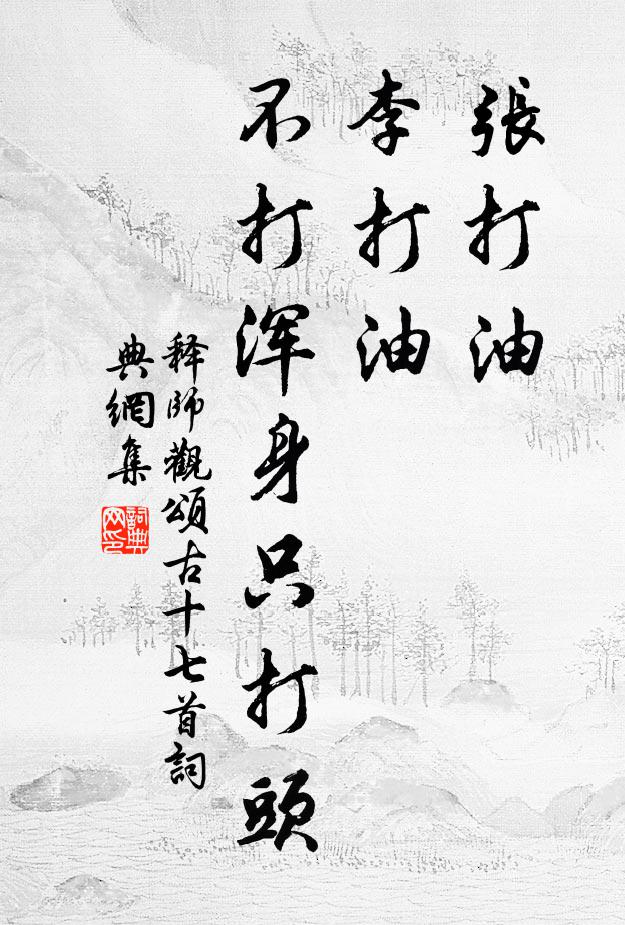 張打油
李打油
不打浑身只打頭
释師觀頌古十七首詞
典網集
詞典
网印